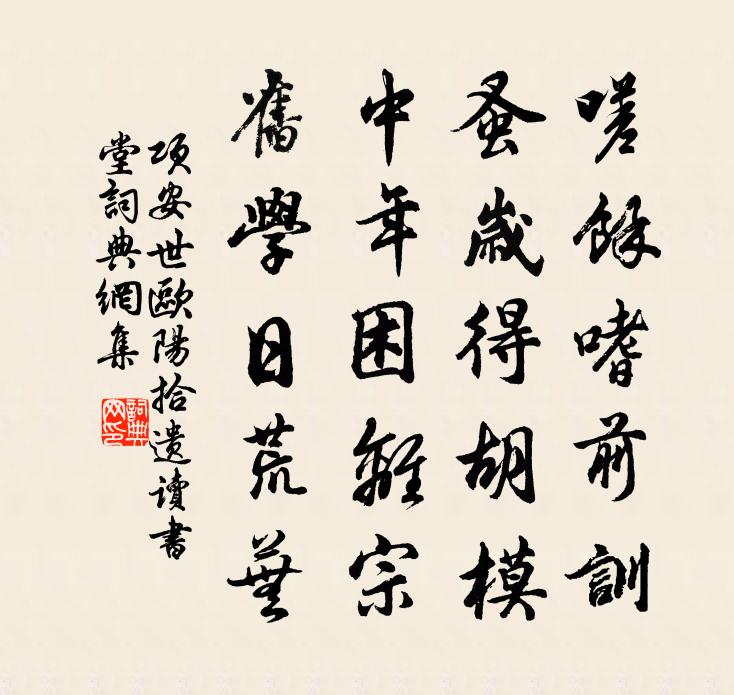 嗟餘嗜前訓
蚤歲得胡模
中年困離宗
舊學日荒蕪
項安世歐陽拾遺讀書
堂詞典網集
詞典網印